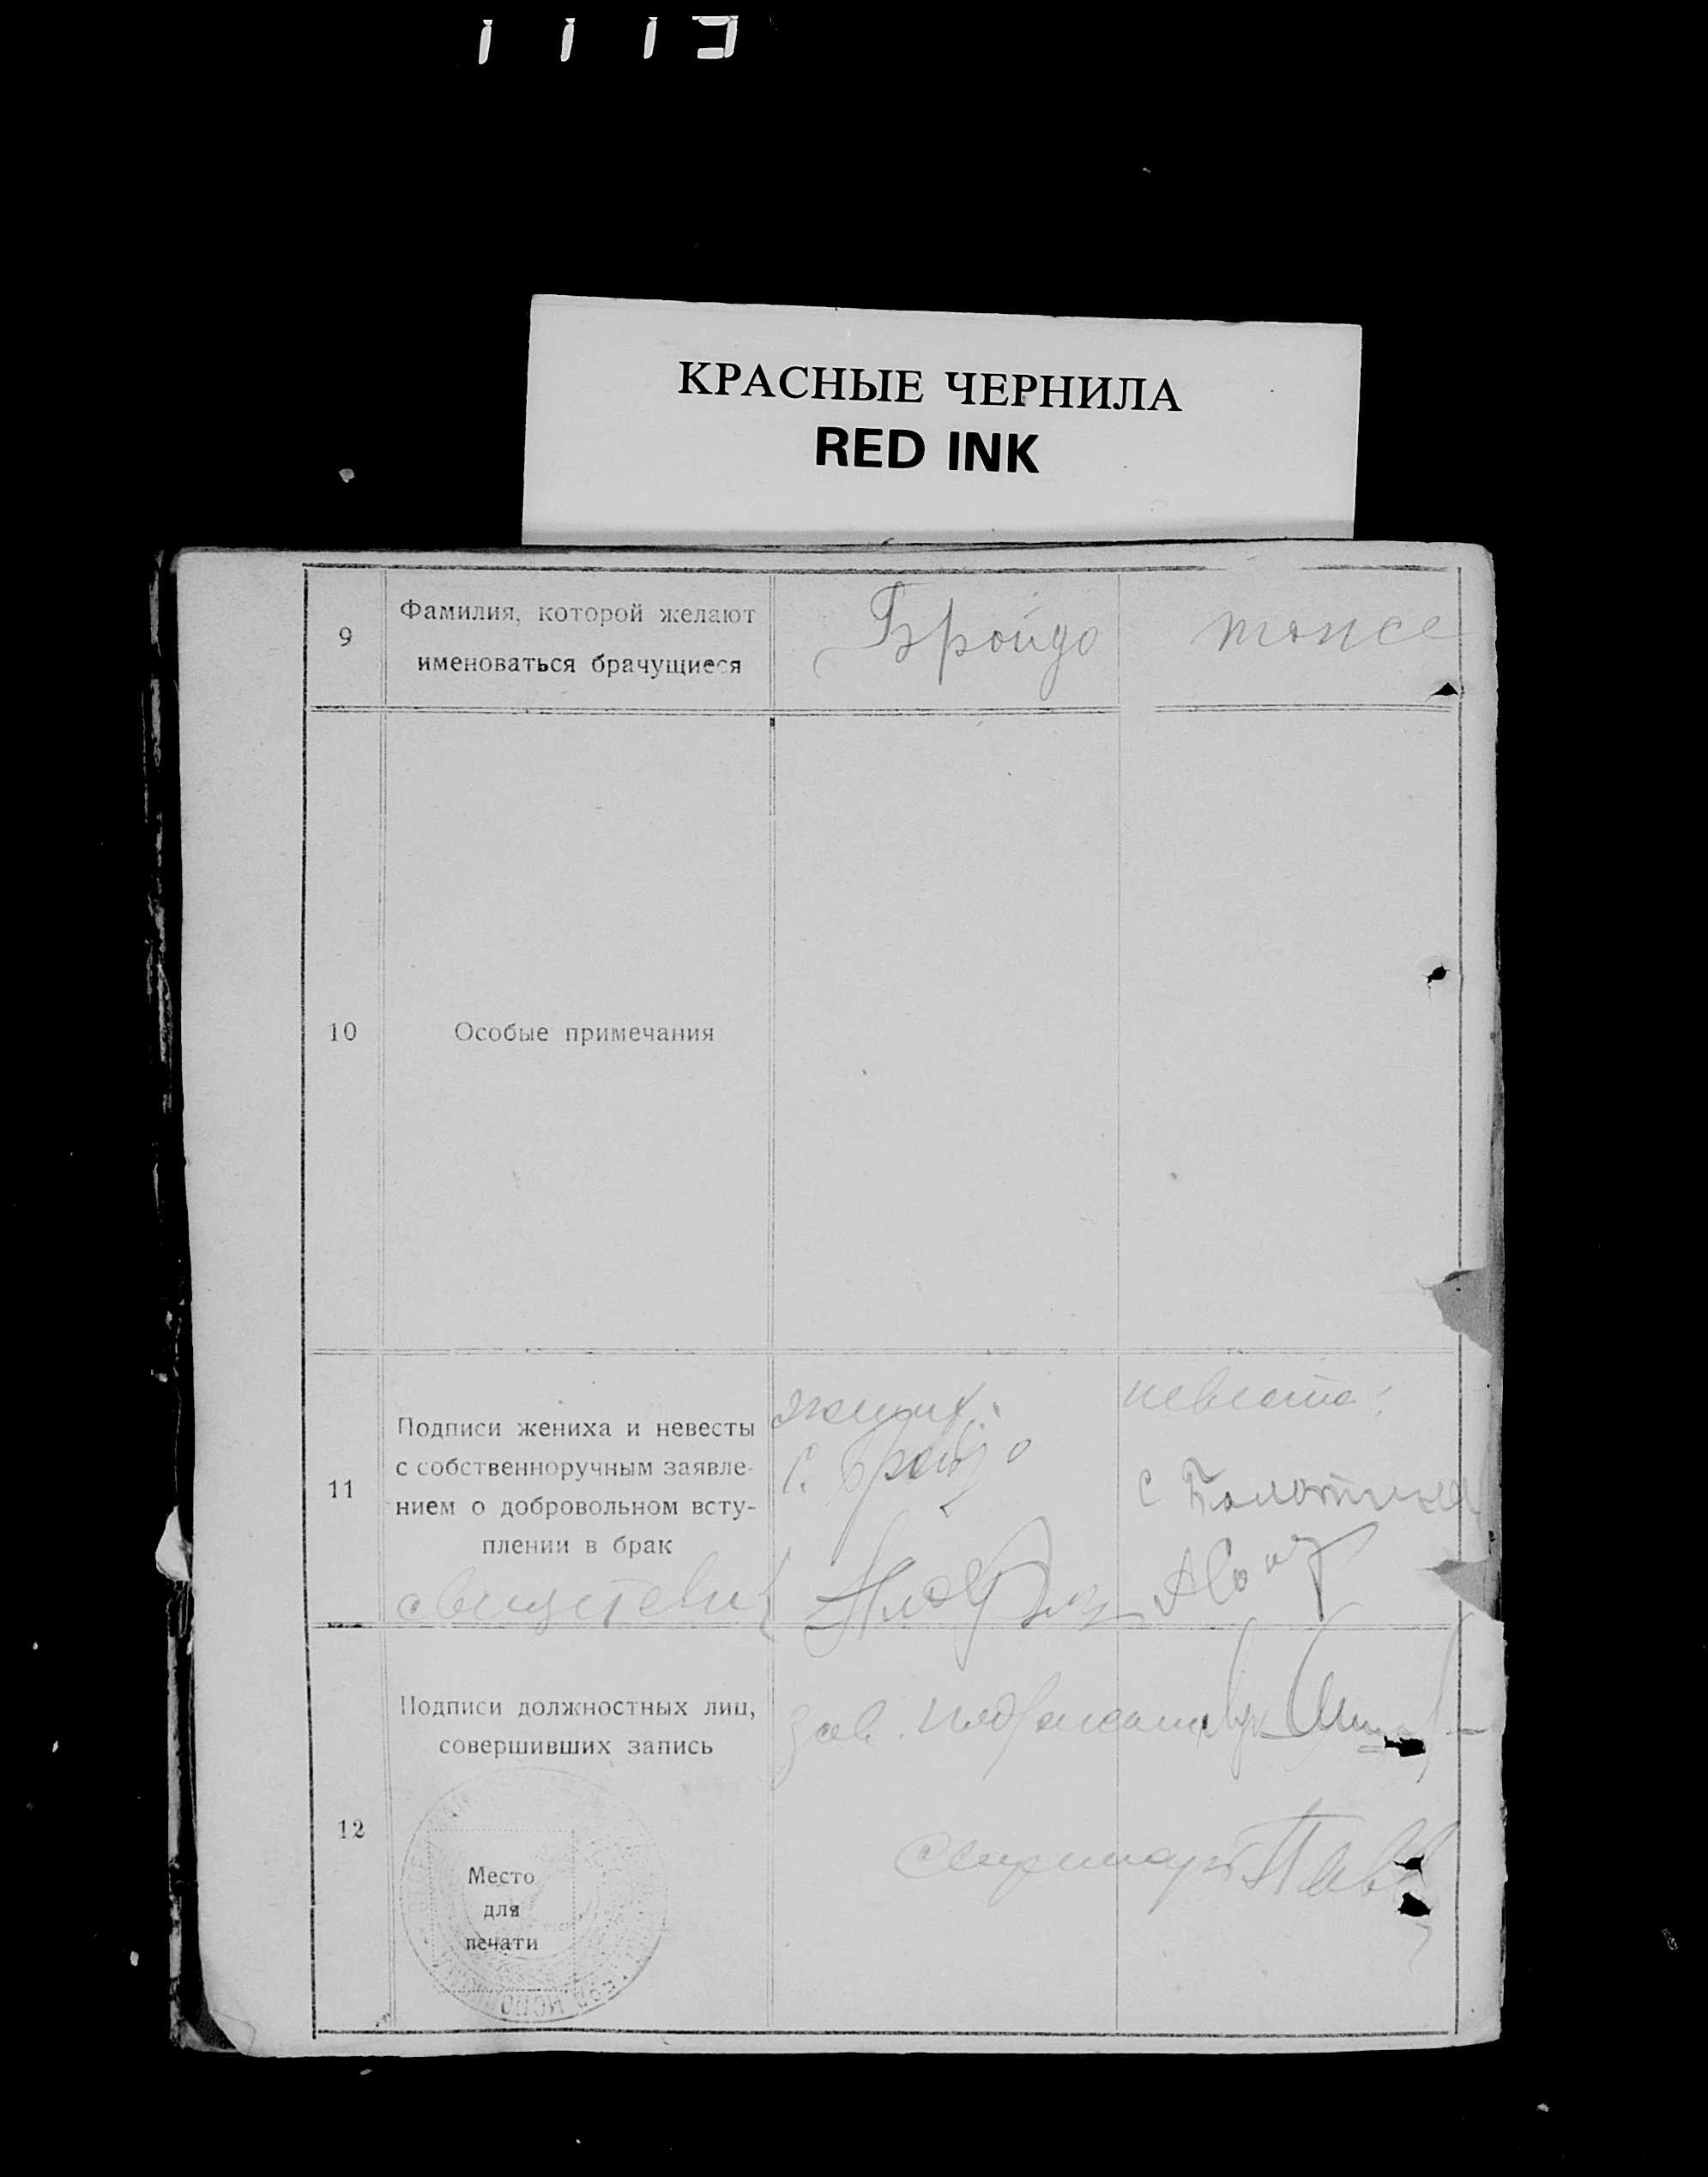 1113
КРАСНЫЕ ЧЕРНИЛА
RED INK
9
Фамилия, которой желают
именоваться брачущиеся
Бройдо
тоже
10
Особые примечания
11
Подписи жениха и невесты
с собственноручным заявле-
нием о добровольном всту-
плении в брак
жених:
С. Бройдо
невеста:
С Болотина
свидетели
12
Подписи должностных лиц,
совершивших запись
Место
для
печати
Зав. подотделом
секретарь